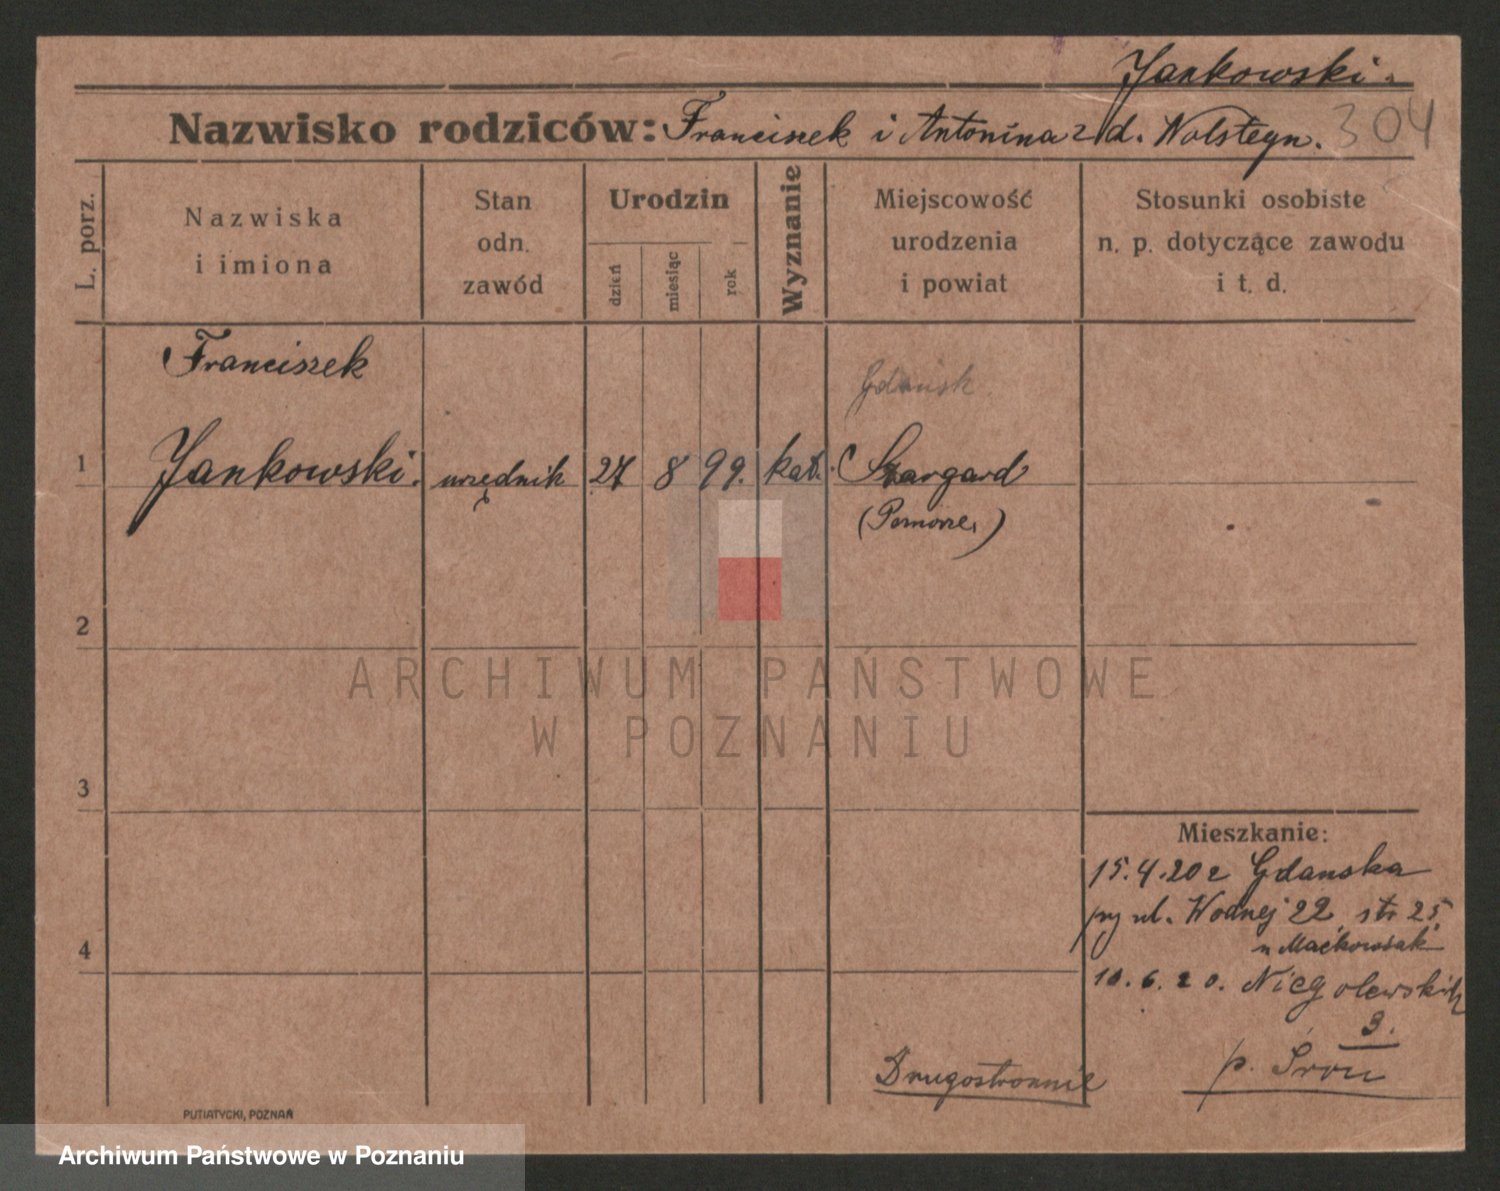 Jankowski.
Nazwisko rodziców: Franciszek i Antonina z d. Wolsteyn. 304
L. porz.
Nazwiska
i imiona
Stan
odn.
zawód
Urodzin
dzień
miesiąc
rok
Wyznanie
Miejscowość
urodzenia
i powiat
Stosunki osobiste
n. p. dotyczące zawodu
i t. d.
Franciszek
Gdańsk
1 Jankowski. urzędnik 27 8 99. kat. Stargard
(Pomorze)
2
3
4
Mieszkanie:
15.4.20 z Gdanska
py ul. Wodnej 22 str 25
u Maćkowiak
10.6.20. Niegolewskich
3.
p.
Drugostronnie
PUTIATYCKI, POZNAŃ
ARCHIWUM PAŃSTWOWE
W POZNANIU
Archiwum Państwowe w Poznaniu